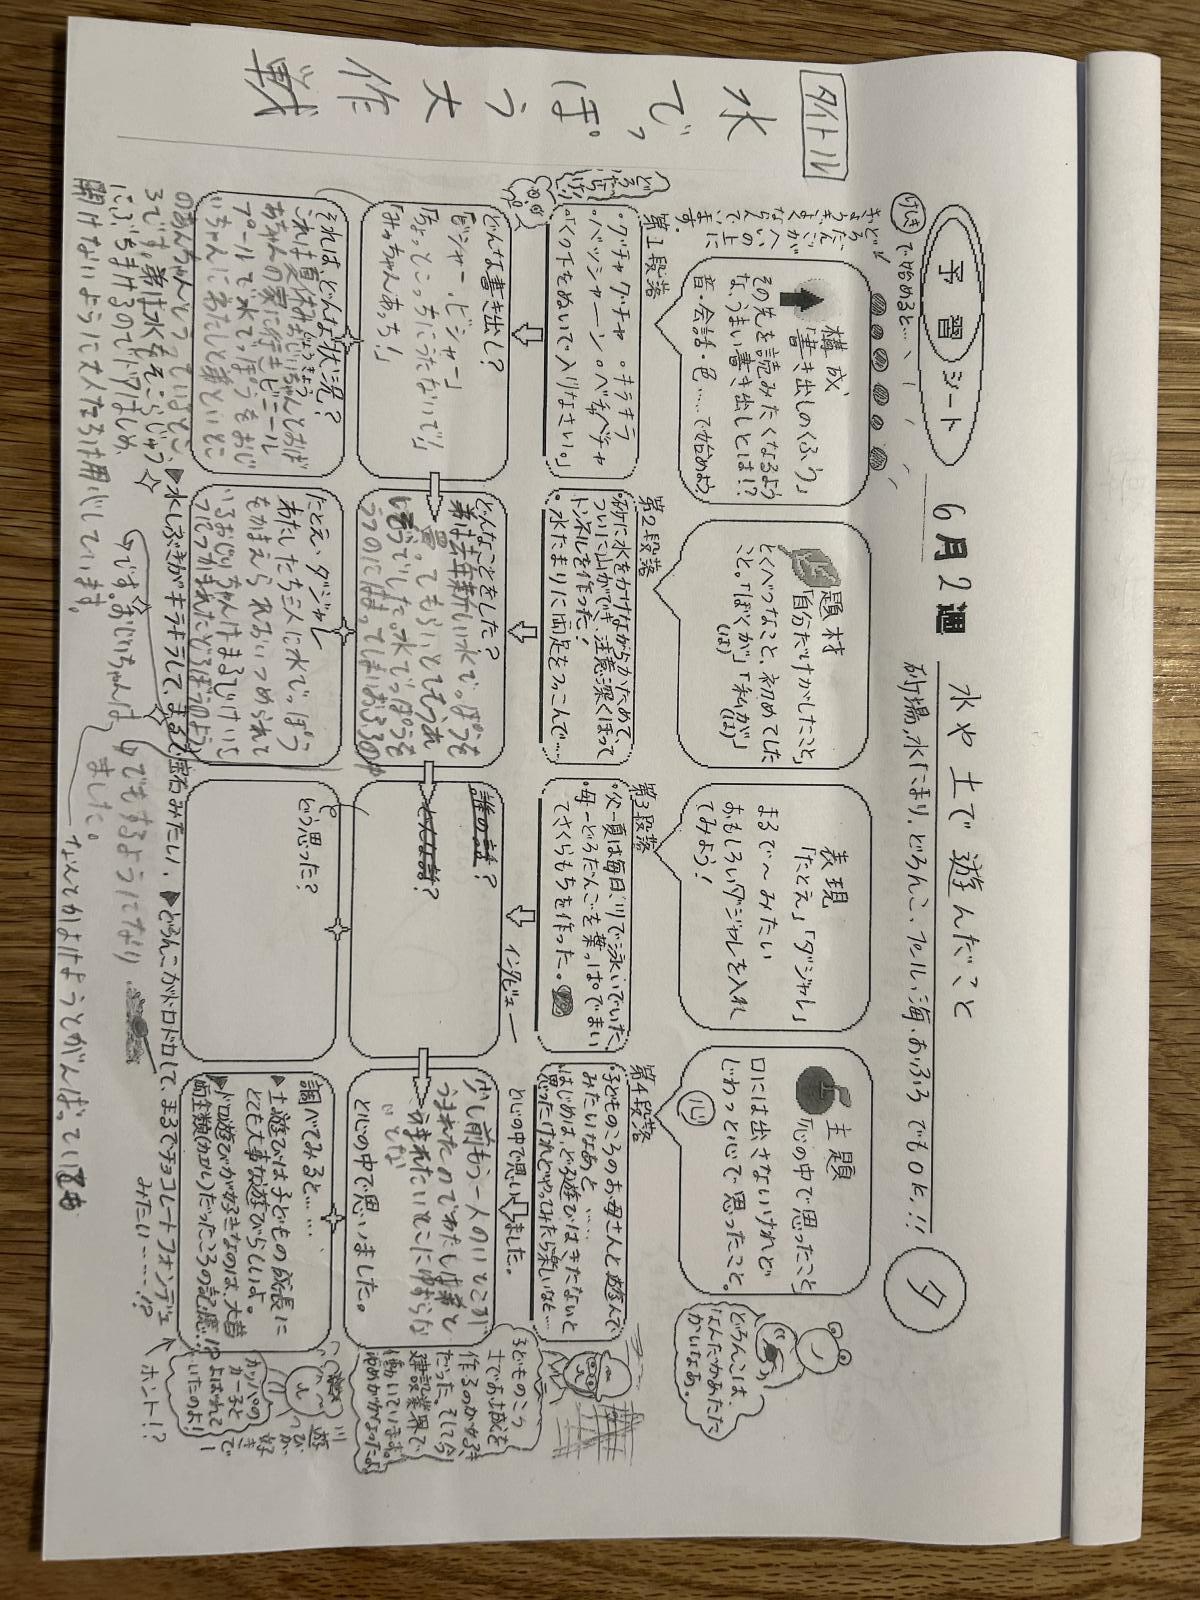 予習シート
6月2週
水や土で遊んだこと
砂場、水たまり、どろんこ、プール、海、おふろでもOK!!
夕
けしきで始めると…、
タイトル
水でっぽう大作戦
構成
「書き出しのくふう」
その先を読みたくなるよう
な、うまい書き出しとは!?
音・会話・色……で始めよう
題材
「自分だけがしたこと」
とくべつなこと、初めてした
こと。「ぼくが」「私が」
(は)(は)
表現
「たとえ」「ダジャレ」
まるで〜みたい
おもしろいダジャレを入れ
てみよう!
主題
「心の中で思ったこと」
口には出さないけれど
じわっと心で思ったこと。
心
どろんこは、
なんだかあたた
かいなあ。
第1段落
・グチャグチャ ・キラキラ
・バッシャーン ・ベチャベチャ
・「くつ下をぬいで入りなさい。」
第2段落
・砂に水をかけながらかためて、
ついに山ができ、注意深くほって
トンネルを作った!
・水たまりに両足をつっこんで……
第3段落
・父ー夏は毎日、川で泳いでいた。
・母ーどろだんごを葉っぱでまい
てさくらもちを作った。
第4段落
・子どものころのお母さんと遊んで
みたいなあと……
・はじめは、どろ遊びはきたないと
思ったけれどやってみたら楽しいなと…
と心の中で思いました。
どんな書き出し?
「ビシャー、ビシャー」
「ちょっとこっちにうたないで!」
「みっちゃんあっち!」
どんなことをした?
弟は去年新しい水でっぽうを
買ってもらいとてもうれ
誰の話?
どんな話?
インタビュー
少し前もう一人のいとこが
うまれたのでわたしは弟と
うまれたいとこにゆずらな
いとな
と心の中で思いました。
子どものころ
土でお城を
作るのが好き
だった。そして今
建設業界で
働いています。
それは、どんな状況?
じょうきょう
これは夏休みおじいちゃんとおば
あちゃんの家に行きビニール
プールで水でっぽうをおじ
いちゃんにわたしと弟といとこ
のあんちゃんでうっているとこ
ろです。弟は水をそこらじゅう
にぶちまけるのでドアはしめ、
開けないように大人たちは用心しています。
たとえ、ダジャレ
わたしたち三人に水でっぽう
をかまえられおいつめられて
いるおじいちゃんはまるでけいじ
につかまれたどろぼうのよう
です。おじいちゃんは
どう思った?
調べてみると……
▶土遊びは子どもの成長に
とても大事な遊びらしいよ。
▶ドロ遊びが好きなのは、大昔
両生類(カエル)だったころの記憶…!?
川遊びが好きで
カッパの
カー子と
よばれて
いたのよ!
ホント!?
▶水しぶきがキラキラして、まるで宝石みたい、
▶どろんこがドロドロして、まるでチョコレートフォンデュ
みたい……!?
でもするようになり
ました。
なんてかけようとがんばってい